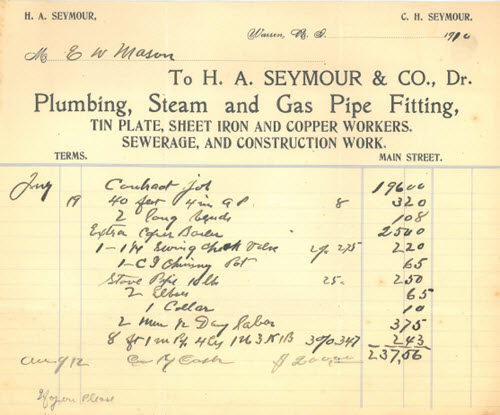 H. A. SEYMOUR. C. H. SEYMOUR.
Warren, R. I. 1910
M E W Mason
To H. A. SEYMOUR & CO., Dr.
Plumbing, Steam and Gas Pipe Fitting,
TIN PLATE, SHEET IRON AND COPPER WORKERS.
SEWERAGE, AND CONSTRUCTION WORK.
TERMS. MAIN STREET.
19 Contract Job 19600
40 feet 4 in 8 320
2 long bends 108
Extra Boiler 2500
1 - 1 1/4 Swing Check Valve 275 220
1 - C I Chimney Pot 65
Stove Pipe 10 lb 25 250
2 Elbows 65
1 Collar 10
2 Men 1/2 Day labor 375
8 ft 1 in 243
237,56
Aug 12 Cr By Cash
Please